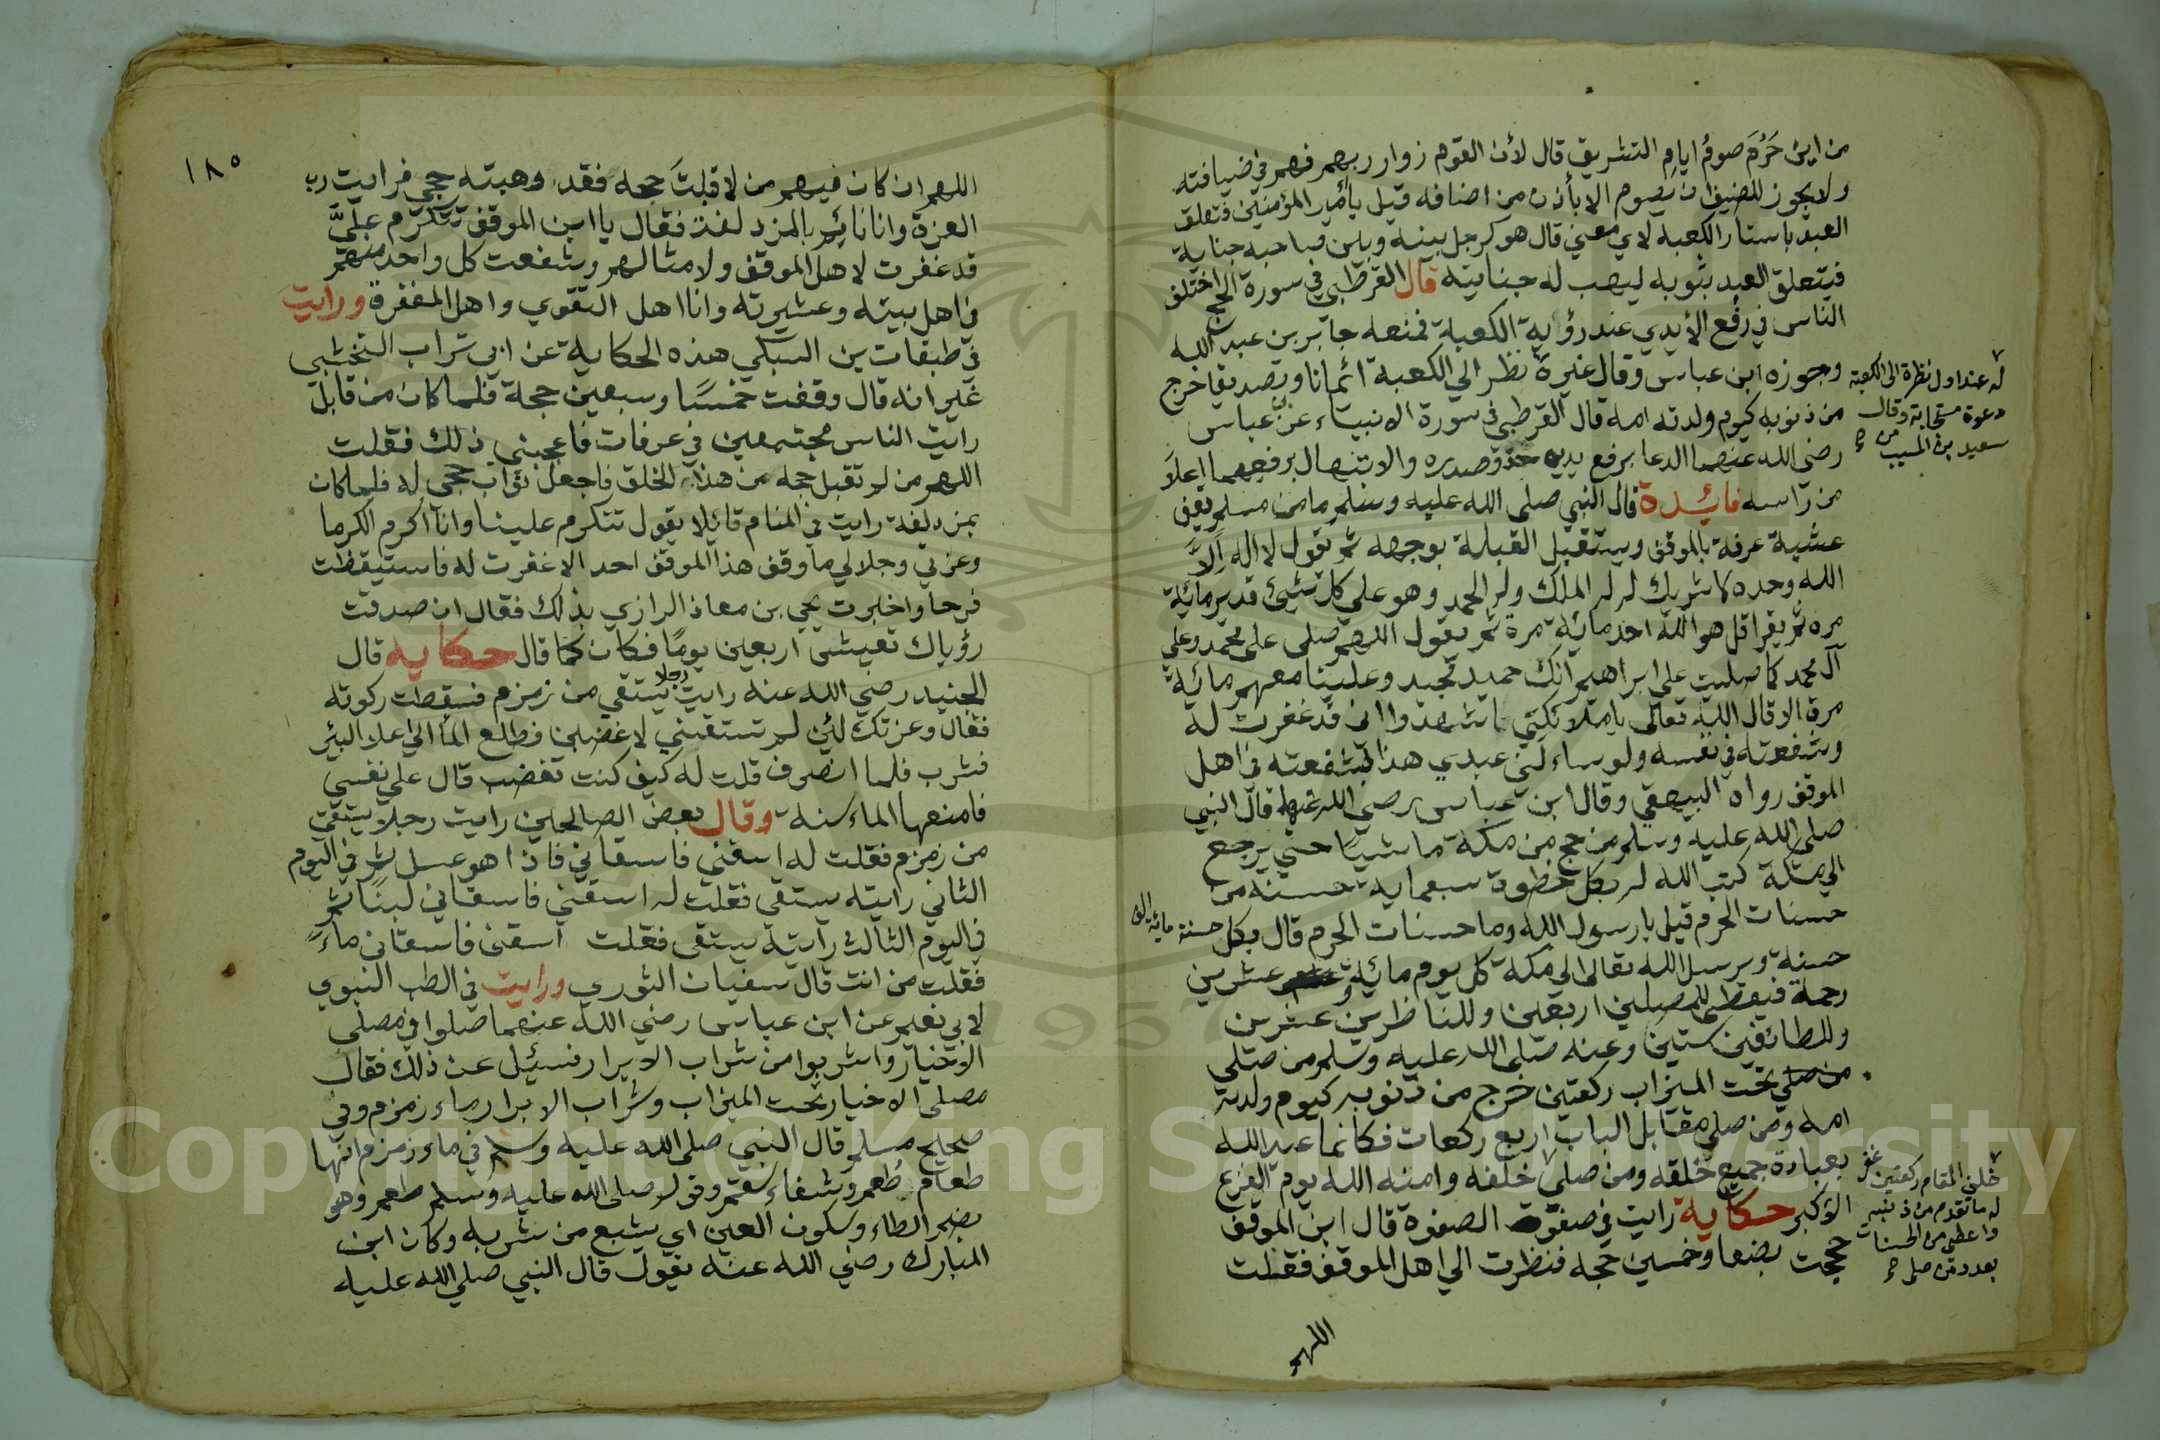 من اين حَرُمَ صومُ ايامِ التشريق قال لأن القوم زوار ربهم فهم في ضيافته
ولا يجوز للضيف ان يصوم الا بأذن من اضافه قيل يا أمير المؤمنين فتعلق
العبد باستار الكعبة لاي معني قال هو كرجل بينه وبين صاحبه جناية
فيتعلق العبد بثوبه ليهب له جنايته قال القرطبي في سورة الحج اختلف
الناس في رفع الأيدي عند رؤية الكعبة فمنعه جابر بن عبد الله
وجوزه ابن عباس وقال غيره نظر الي الكعبة ائمانا وتصديقا خرج
من ذنوبه كيوم ولدته امه قال القرطبي في سورة الانبياء عن ابن عباس
رضي الله عنهما الدعا برفع يديه حذو صدره والابتهال برفعهما اعلا
من راسه فائدة قال النبي صلى الله عليه وسلم ما من مسلم يقف
عشية عرفة بالموقف ويستقبل القبلة بوجهه ثم يقول لا اله الا
الله وحده لا شريك له له الملك وله الحمد وهو علي كل شيئ قدير مائة
مره ثم يقرا قل هو الله احد مائة مرة ثم يقول اللهم صلى على محمد وعلي
آل محمد كما صليت علي ابراهيم انك حميد مجيد وعلينا معهم مائة
مرة الا قال الله تعالى يا ملائكتي اشهدوا اني قد غفرت له
وشفعته في نفسه ولو ساءلني عبدي هذا لشفعته في اهل
الموقف رواه البيهقي وقال ابن عباس رضي الله عنهما قال النبي
صلى الله عليه وسلم من حج من مكة ماشيًا حتى يرجع
الي مكة كتب الله له بكل خطوة سبعماية حسنة من
حسنات الحرم قيل يا رسول الله وما حسنات الحرم قال بكل حسنة ماية الف
حسنة ويرسل الله تعالى الي مكة كل يوم مائة وعشرين
رحمة فيعطي للمصلين اربعين وللناظرين عشرين
وللطائفين ستين وعنه صلى الله عليه وسلم من صلى
من صلي تحت الميزاب ركعتين خرج من ذنوبه كيوم ولدته
امه ومن صلى مقابل الباب اربع ركعات فكانما عبد الله
بعبادة جميع خلقه ومن صلى خلفه وامنه الله يوم الفزع
الأكبر حكاية رايت في صفوة الصفوة قال ابن الموقف
حججت بضعا وخمسين حجه فنظرت الي اهل الموقف فقلت
اللهم
له عند اول نظرة الى الكعبة
دعوة مستجابة وقال
سعيد بن المسيب من
خلف المقام ركعتين غفر
له ما تقدم من ذنبه
واعطي من الحسنات
بعدد من صلى
١٨٥
اللهم ان كان فيهم من لا قبلتَ حجه فقد وهبته حجي فرايت رب
العزة وانا نائم بالمزدلفة فقال يا ابن الموقف تتكرم عليَّ
قد غفرت لاهل الموقف ولامثالهم وشفعت كل واحد منهم
في اهل بيته وعشيرته وانا اهل التقوي واهل المغفرة ورايت
في طبقات بن السبكي هذه الحكاية عن ابي تراب النخشبي
غير انه قال وقفت خمسًا وسبعين حجة فلما كان من قابل
رايت الناس مجتمعين في عرفات فاعجبني ذلك فقلت
اللهم من لم تقبل حجه من هذا الخلق فاجعل ثواب حجي له فلما كان
بمزدلفة رايت في المنام قائلا يقول تتكرم علينا وانا اكرم الكرما
وعزتي وجلالي ما وقف هذا الموقف احد الا غفرت له فاستيقظت
فرحا واخبرت يحيي بن معاذ الرازي بذلك فقال ان صدقت
رؤياك تعيش اربعين يومًا فكان كما قال حكاية قال
الجنيد رضي الله عنه رايت رجلا يستقي من زمزم فسقطت ركوته
فقال وعزتك لئن لم تسقيني لاغضبن فطلع الماْ الي اعلا البئر
فشرب فلما انصرف قلت له كيف كنت تغضب قال علي نفسي
فامنعها الماء سنة وقال بعض الصالحين رايت رجلا يستقي
من زمزم فقلت له اسقني فاسقاني فاذا هو عسل ثم في اليوم
الثاني رايته يستقي فقلت له اسقني فاسقاني لبنًا ثم
في اليوم الثالث رايته يستقي فقلت اسقني فاسقاني ماءً
فقلت من انت قال سفيان الثوري ورايت في الطب النبوي
لابي نعيم عن ابن عباس رضي الله عنهما صلوا في مصلى
الاخيار واشربوا من شراب الابرار فسئيل عن ذلك فقال
مصلى الاخيار تحت الميزاب وشراب الابرار ماء زمزم وفي
صحيح مسلم قال النبي صلى الله عليه وسلم في ماء زمزم انها
طعام طُعم وشفاء سقم وقوله صلى الله عليه وسلم طعم وهو
بضم الطاء وسكون العين اي يشبع من شربه وكان ابن
المبارك رضي الله عنه يقول قال النبي صلي الله عليه
Copyright © King Saud University
1957